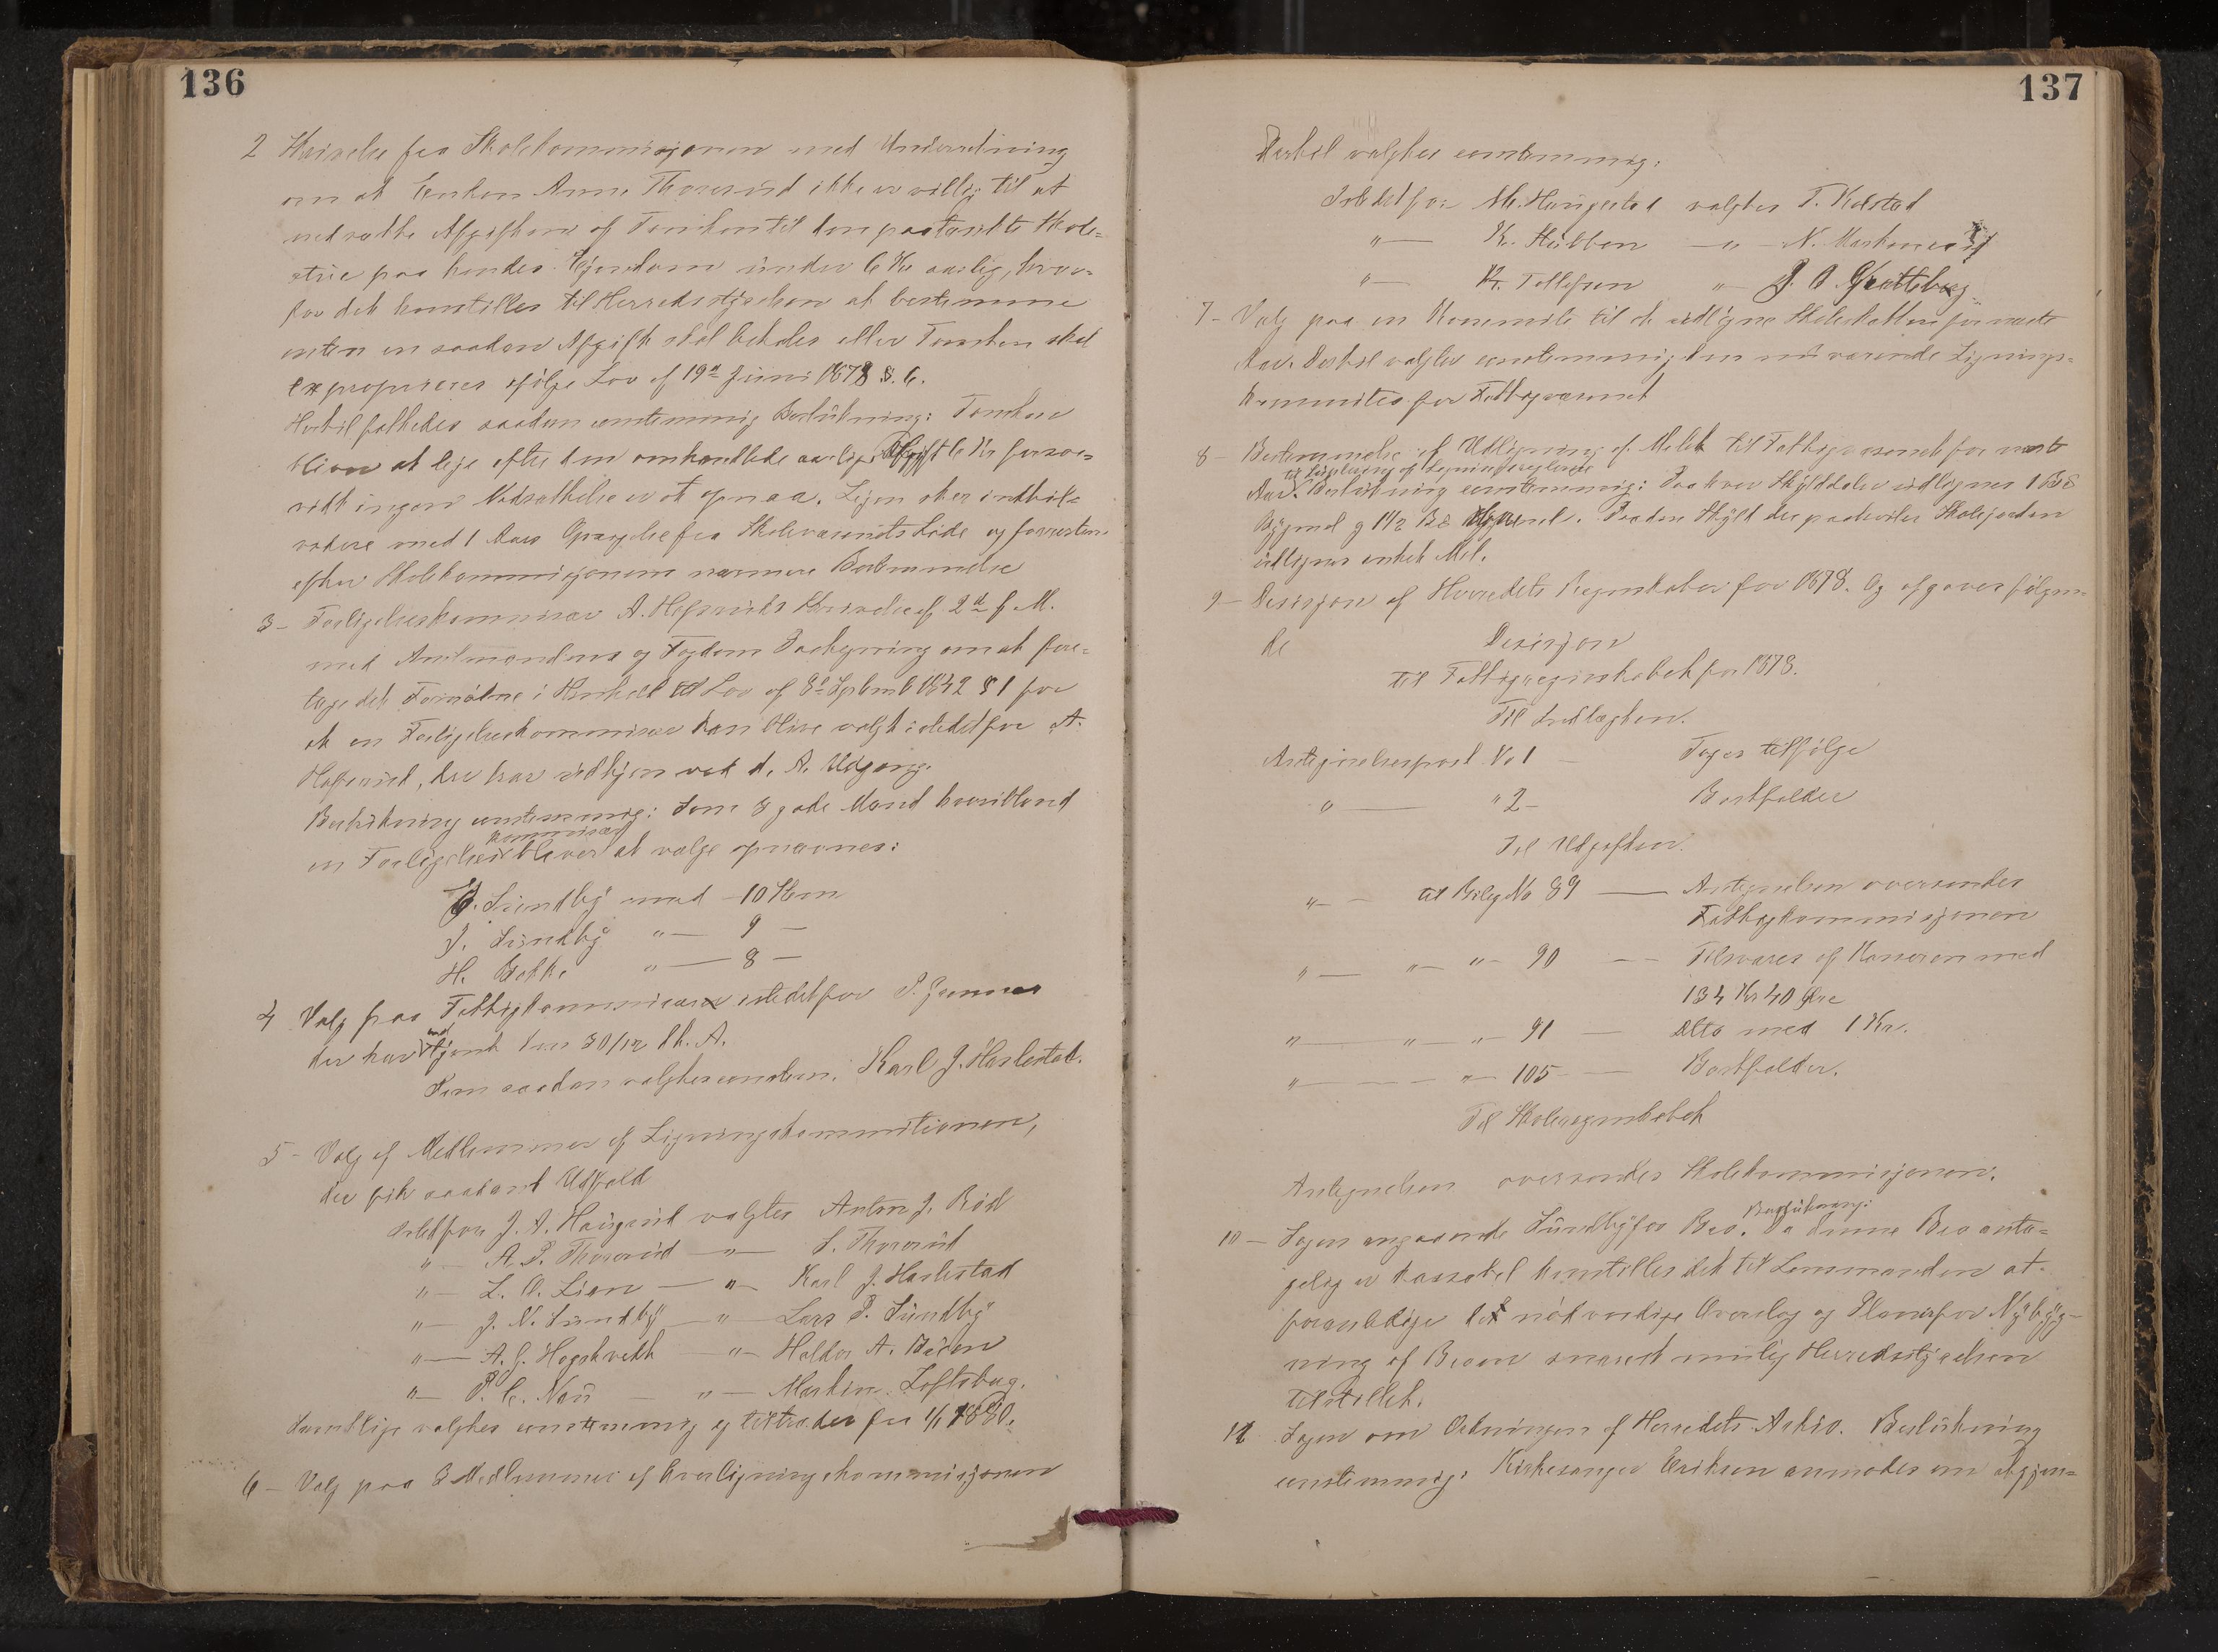 136
2 Skrivelse fra Skolekommisjonen med Underretning
om at Enken Anne Thorsrud ikke er villig til at
nedsætte Afgiften af Tomten til den paatænkte Skole-
stue paa hendes Ejendom under 6 Kr aarlig, hvor-
for det henstilles til Herredsstyrelsen at bestemme
enten en saadan Afgift skal betales eller Tomten skal
exproprieres ifølge Lov af 19de Juni 1878 § 6.
Hertil fattedes saadan enstemmig Beslutning: Tomten
bliver at leje efter den omhandlede aarlige Afgift 6 Kr forsaa-
vidt ingen Nedsættelse er at opnaa. Lejen sker indtil
videre med 1 Aars Opsigelse fra Skolevæsenets Side og forresten
efter Skolekommisjonens nærmere Bestemmelse
3- Forligelseskommisær A. Hofsruds Skrivelse af 2den f. M.
med Amtmandens og Fogdens Paategning om at fore-
tage det Fornødne i Henhold til Lov af 8de Septemb 1842 § 1 for
at en Forligelseskommisær kan blive valgt istedetfor A.
Hofsrud, der har udtjen ved d. A. Udgang.
Beslutning enstemmig: Som 3 gode Mænd hvoriblandt
kommisær
en Forligelses bliver at vælge opnævnes:
H. Sundby med 10 Stem
J. Sundby "— 9 —
H. Bakke "— 8 —
4 Valg paa Fattigkommisær istedetfor P. Gunnes
ud
der har tjent den 30/12 d. A.
Som saadan valgtes enstem. Karl J. Harlestad.
5- Valg af Medlemmer af Ligningskommitionen,
der fik saadant Udfald
Istedfor J. A. Haugerud valgtes Anton J. Rød
"— A. P. Thorsrud —"— S. Thorsrud
"— L. O. Lien —"— Karl J. Harlestad
"— J. N. Sundby —"— Lars P. Sundby
"— A. G. Hogstvedt —"— Haldor A.
"— P. C. Næs —"— Martin Loftsbug.
samtlige valgtes enstemmig og tiltræder fra 1/1 1880.
6- Valg paa 3 Medlemmer af Overligningskommisjonen
137
Hertil valgtes enstemmig:
Istedetfor M. Haugestad valgtes T. Kolstad
"— K. Stubben —"— N.
"— Kr. Tollefsen "— J. O. Grøtteberg
7- Valg paa en Kommite til at udligne Skoleskatten for næste
Aar. Dertil valgtes enstemmig den nuværende Lignings-
kommites for Fattigvæsenet
8- Bestemmelse af Udligning af Melet til Fattigvæsenet for næste
Aar. Beslutning enstemmig: Paa hver Skylddaler udlignes 1 B℔
Bygmel og 1 1/2 B℔. Paa den Skyld der paahviler Skolejorden
udlignes enkelt Mel.
9- Desisjon af Herredets Regnskaber for 1878. Og afgaves følgen-
de Desisjon
til Fattigregnskabet for 1878.
Til Indtægten.
Antegnelsespost No 1 — Tages tilfølge
"— " 2- Bortfalder
Til Udgiften.
"— til Bilag No 89 — Antegnelsen oversendes
Fattigkommisjonen
"— "— "— 90 — Tilsvares af Kasseren med
134 Kr 40 Øre
"— "— "— 91 — dito med 1 Kr.
"— — "— 105 — Bortfalder.
Til Skoleregnskabet
Antegnelsen oversendes Skolekommisjonen.
Beslutning:
10- Sagen angaaende Sundbyfos Bro. Da denne Bro anta-
gelig er kassabel henstilles det til Lensmanden at
foranledige det nødvendige Overslag og Planer for Nybyg-
ning af Broen snarest mulig Herredsstyrelsen
tilstillet.
11 Sagen om Ordningen af Herredets Arkiv. Beslutning
enstemmig: Kirkesanger Eriksen anmodes om at gjen-